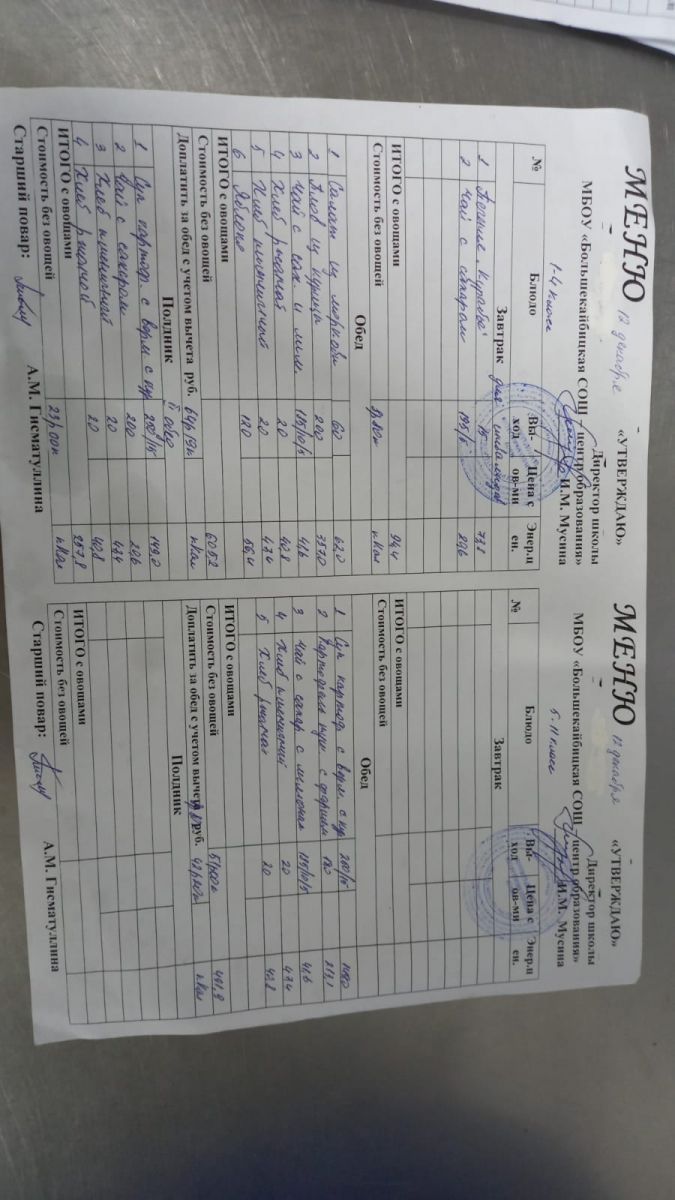 МЕНЮ 12 декабря
«УТВЕРЖДАЮ»
Директор школы
МБОУ «Большекайбицкая СОШ – центр образования»
И.М. Мусина
1-4 классы
№ Блюдо Вы-ход Цена с ов-ми Энер.ц ен.
Завтрак для инвалидов
1 Печенье "Курабье" 15 73.8
2 Чай с сахаром 195/5 20,6
ИТОГО с овощами 94.4
Стоимость без овощей ккал
Обед
1 Салат из моркови 60 62,0
2 Плов из курицы 200 357.0
3 Чай с сах и лим. 195/10/5 41,6
4 Хлеб ржаной 20 40.8
5 Хлеб пшеничный 20 47.4
6 Яблоко 120 56,4
ИТОГО с овощами 605.2
Стоимость без овощей 64р19к ккал
Доплатить за обед с учетом вычета руб.
Полдник II обед
1 Суп картоф. с верм. с кур 200/15 149.0
2 Чай с сахаром 200 20,6
3 Хлеб пшеничный 20 47.4
4 Хлеб ржаной 20 40,8
ИТОГО с овощами 257,8
Стоимость без овощей 23р,00к ккал
Старший повар: А.М. Гисматуллина
МЕНЮ 12 декабря
«УТВЕРЖДАЮ»
Директор школы
МБОУ «Большекайбицкая СОШ – центр образования»
И.М. Мусина
5-11 класс
№ Блюдо Вы-ход Цена с ов-ми Энер.ц ен.
Завтрак
ИТОГО с овощами
Стоимость без овощей
Обед
1 Суп картоф. с верм. с кур 200/15 149.0
2 Картофельное пюре с фаршем 180
3 Чай с сахар с лимоном 195/10/5 41,6
4 Хлеб пшеничный 20 47.4
5 Хлеб ржаной 20 40.8
ИТОГО с овощами 491,9
Стоимость без овощей ккал
Доплатить за обед с учетом вычета руб.
Полдник
ИТОГО с овощами
Стоимость без овощей
Старший повар: А.М. Гисматуллина